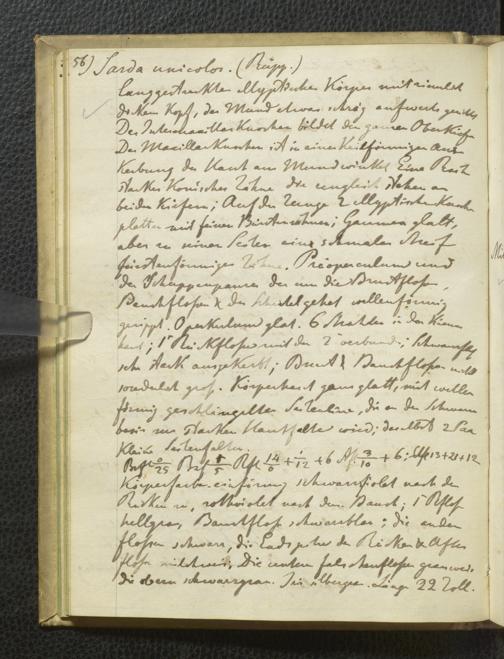 56) Sarda unicolor. (Rüpp.)
Langgestreckter elyptischer Körper mit ziemlich
dickem Kopf, der Mund etwas schräg aufwerts
Der Intermaxillar Knochen bildet den ganzen Ober Kiefer
Der Maxillar Knochen ist in einer Keilförmigen Aus-
Kerbung der Haut am Mundwinkel Eine Reihe
starker Konischer Zähne die ungleich stehen an
beiden Kiefern; Auf der Zunge 2 elyptische Knochen
platten mit feinen Bürstenzähnen; Gaumen glatt,
aber zu seinen Seiten eine schmaler Streif
bürstenförmiger Zähne. Präoperculum und
der Schuppenpanzer der um die Brustflosse,
Bauchflosse & der Scheitel gehet wellenförmig
gerippt. Operkulum glat. 6 Strahlen in der Kiemen
haut; 1e Rückflosse mit der 2 verbunden; Schwanzfl
sehr stark ausgekerbt; Brust & Bauchflossen nicht
sonderlich gros. Körperhaut ganz glatt, mit wellen
förmig geschlängelter Seitenlinie, die an der Schwanz
basis zur starken Hautfalte wird; daselbst 2 Paar
Kleine Seitenfalten.
Brfl 0/25 Bfl 1/5 Rfl 14/0 + 1/12 + 6 Afl 3/10 + 6; Schfl 13+21+12
Körperfarbe einförmig schwarzviolet nach dem
Rücken zu, rothviolet nach dem Bauch; 1e Rflos
hellgrau, Bauchflos schwarzblau; die andern
flossen schwarz, die Endspitze der Rücken & After
flosse milchweis, die untern falschen flossen grauweis
die obern schwarzgrau. Iris silbergrau. Länge 22 Zoll.